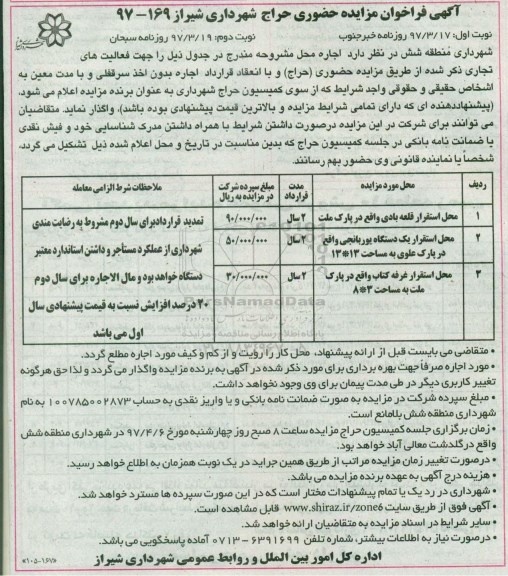 آگهی فراخوان مزایده حضوری حراج شهرداری شیراز ۱۶۹-۹۷
نوبت اول: ۹۷/۳/۱۷ روزنامه خبرجنوب
نوبت دوم: ۹۷/۳/۱۹ روزنامه سبحان
شهرداری منطقه شش در نظر دارد اجاره محل مشروحه مندرج در جدول ذیل را جهت فعالیت های
تجاری ذکر شده از طریق مزایده حضوری (حراج) و با انعقاد قرارداد اجاره بدون اخذ سرقفلی و با مدت معین به
اشخاص حقیقی و حقوقی واجد شرایط که از سوی کمیسیون حراج شهرداری به عنوان برنده مزایده اعلام می شود،
(پیشنهاددهنده ای که دارای تمامی شرایط مزایده و بالاترین قیمت پیشنهادی بوده باشد)، واگذار نماید. متقاضیان
می توانند برای شرکت در این مزایده درصورت داشتن شرایط با همراه داشتن مدرک شناسایی خود و فیش نقدی
یا ضمانت نامه بانکی در جلسه کمیسیون حراج که بدین مناسبت در تاریخ و محل اعلام شده ذیل تشکیل می گردد،
شخصاً یا نماینده قانونی وی حضور بهم رسانند.
ردیف محل مورد مزایده مدت قرارداد مبلغ سپرده شرکت در مزایده به ریال ملاحظات شرط الزامی معامله
۱ محل استقرار قلعه بادی واقع در پارک ملت ۲ سال ۹۰/۰۰۰/۰۰۰
۲ محل استقرار یک دستگاه یوربانجی واقع در پارک علوی به مساحت ۱۳*۱۳ ۲ سال ۵۰/۰۰۰/۰۰۰
۳ محل استقرار غرفه کتاب واقع در پارک ملت به مساحت ۳*۸ ۲ سال ۳۰/۰۰۰/۰۰۰
تمدید قراردادبرای سال دوم مشروط به رضایت مندی
شهرداری از عملکرد مستأجر و داشتن استاندارد معتبر
دستگاه خواهد بود و مال الاجاره برای سال دوم
۲۰ درصد افزایش نسبت به قیمت پیشنهادی سال
اول می باشد
• متقاضی می بایست قبل از ارائه پیشنهاد، محل کار را رؤیت و از کم و کیف مورد اجاره مطلع گردد.
• مورد اجاره صرفاً جهت بهره برداری برای مورد ذکر شده در آگهی به برنده مزایده واگذار می گردد و لذا حق هرگونه
تغییر کاربری دیگر در طی مدت پیمان برای وی وجود نخواهد داشت.
• مبلغ سپرده شرکت در مزایده به صورت ضمانت نامه بانکی و یا واریز نقدی به حساب ۱۰۰۷۸۵۰۰۲۸۷۳ به نام
شهرداری منطقه شش بلامانع است.
• زمان برگزاری جلسه کمیسیون حراج مزایده ساعت ۸ صبح روز چهارشنبه مورخ ۹۷/۴/۶ در شهرداری منطقه شش
واقع در گلدشت معالی آباد خواهد بود.
• درصورت تغییر زمان مزایده مراتب از طریق همین جراید در یک نوبت همزمان به اطلاع خواهد رسید.
• هزینه درج آگهی به عهده برنده مزایده می باشد.
• شهرداری در رد یک یا تمام پیشنهادات مختار است که در این صورت سپرده ها مسترد خواهد شد.
• آگهی فوق از طریق سایت www.shiraz.ir/zone6 قابل مشاهده است.
• سایر شرایط در اسناد مزایده به متقاضیان ارائه خواهد شد.
• درصورت نیاز به اطلاعات بیشتر، شماره تلفن ۶۳۹۱۶۹۹-۰۷۱۳ آماده پاسخگویی می باشد.
اداره کل امور بین الملل و روابط عمومی شهرداری شیراز